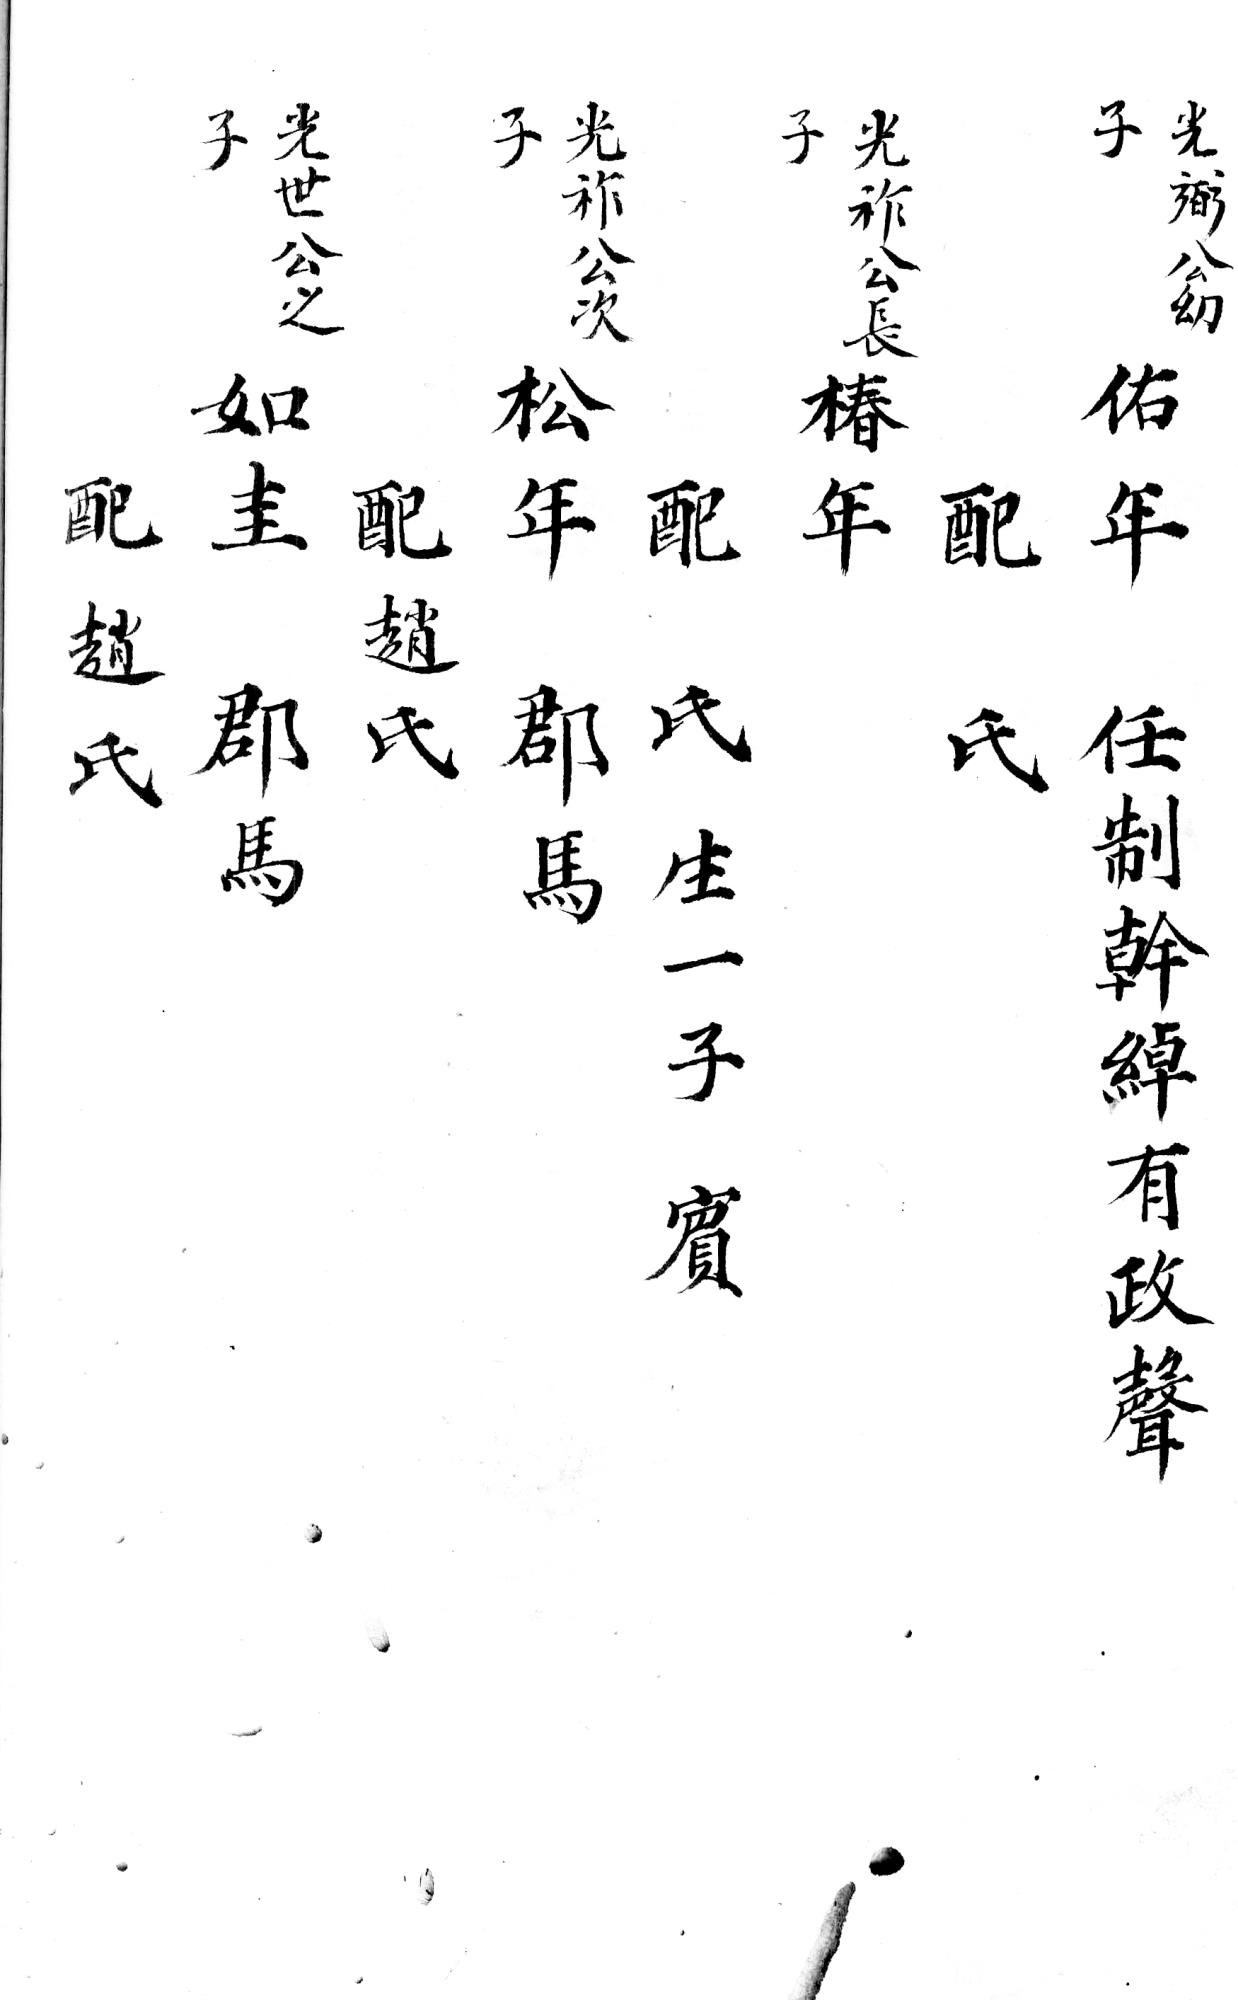 光弼公幼子
佑年　任制幹綽有政聲
配　氏
光祚公長子
椿年
配　氏生一子　賓
光祚公次子
松年　郡馬
配趙氏
光世公之子
如圭　郡馬
配趙氏